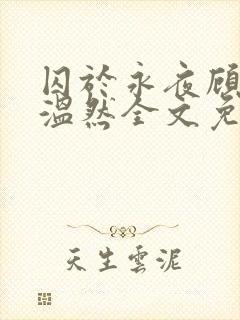 囚於永夜顧
溫然全文免
天生雲泥